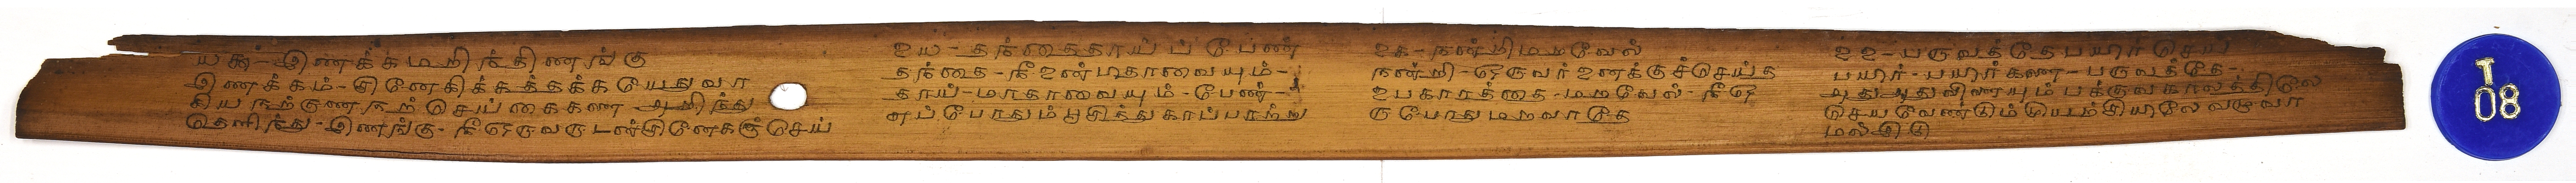 யகூ-இணக்கமறிந்திணங்கு
இணக்கம்-சினேகிக்கத்தக்க யேதுவா
கிய நற்குண நற்செய்கைகண-அறிந்து
தெளிந்து-இணங்கு-நீ ஒருவருடன்சினேகஞ்செய்
உய-தந்தைதாய்ப் பேண்
தந்தை-நீ உன்பிதாவையும்-
தாய்-மாதாவையும்-பேண்-
எப்போதும்பூசித்துகாப்பாற்று
உக-நன்றிமறவேல்
நன்றி-ஒருவர்உனக்குச்செய்த
உபகாரத்தை-மறவேல்-நீஒ
குபோதுமறவாதே
உஉ-பருவத்தேபயிர்செய்
பயிர்-பயிர்கண-பருவத்தே-
அதுஅதுவிளையும்பக்குவகாலத்திலே
செயவேண்டும்யெந்தியலேவழுவா
மல்இடு
T
08